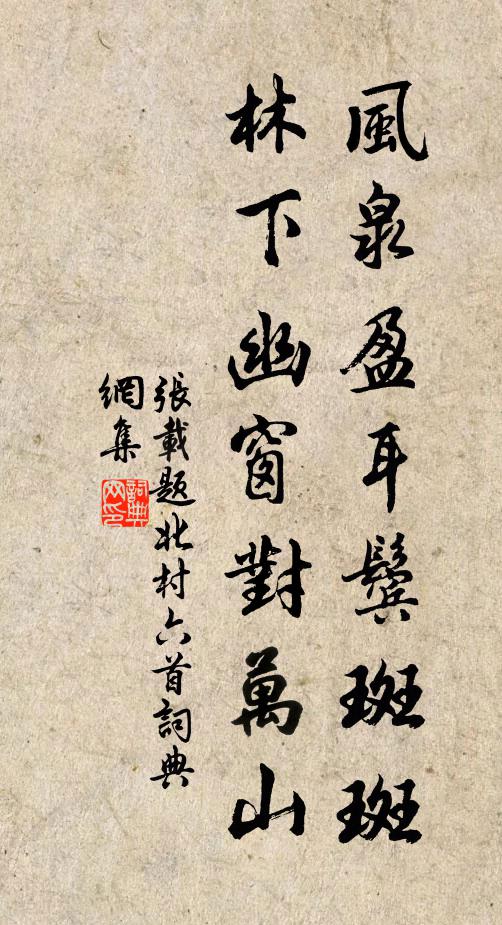 風泉盈耳鬢斑斑
林下幽窗對萬山
張載題北村六首詞典
網集
詞典
网印